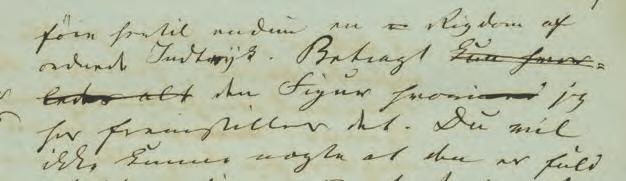 föie hertil endnu en Rigdom af
ordnede Indtryk. Betragt kun hvor-
ledes alt den Figur hvori jeg
her fremstiller det. Du vil
ikke kunne nægte at den er fuld